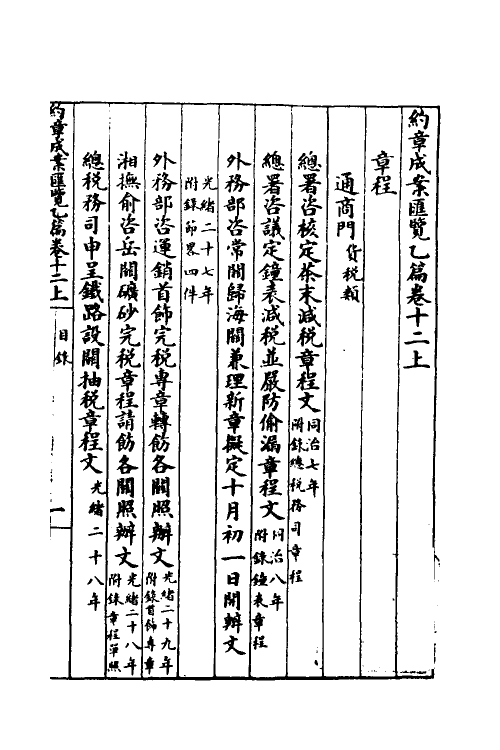 約章成案匯覽乙篇卷十二上
章程
通商門 貨稅類
總署咨核定茶末減稅章程文 同治七年 附錄總稅務司章程
總署咨議定鐘表減稅並嚴防偷漏章程文 同治八年 附錄鐘表章程
外務部咨常關歸海關兼理新章擬定十月初一日開辦文
光緒二十七年 附錄節畧四件
外務部咨運銷首飾完稅專章轉飭各關照辦文 光緒二十九年 附錄首飾專章
湘撫俞咨岳關礦砂完稅章程請飭各關照辦文 光緒二十八年 附錄章程單照
總稅務司申呈鐵路設關抽稅章程文 光緒二十八年
約章成案匯覽乙篇卷十二上 目錄 一